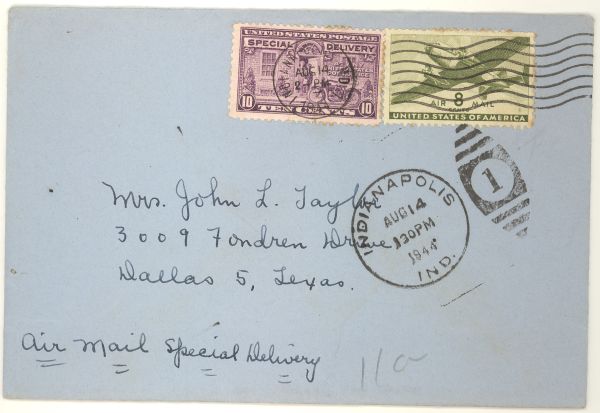 UNITED STATES POSTAGE
SPECIAL DELIVERY
10 TEN CENTS 10
AUG 14
PM
8
AIR MAIL
CENTS
UNITED STATES OF AMERICA
1
INDIANAPOLIS
AUG 14
130PM
1944
IND.
Mrs. John L. Taylor
3009 Fondren Drive
Dallas 5, Texas.
Air Mail Special Delivery